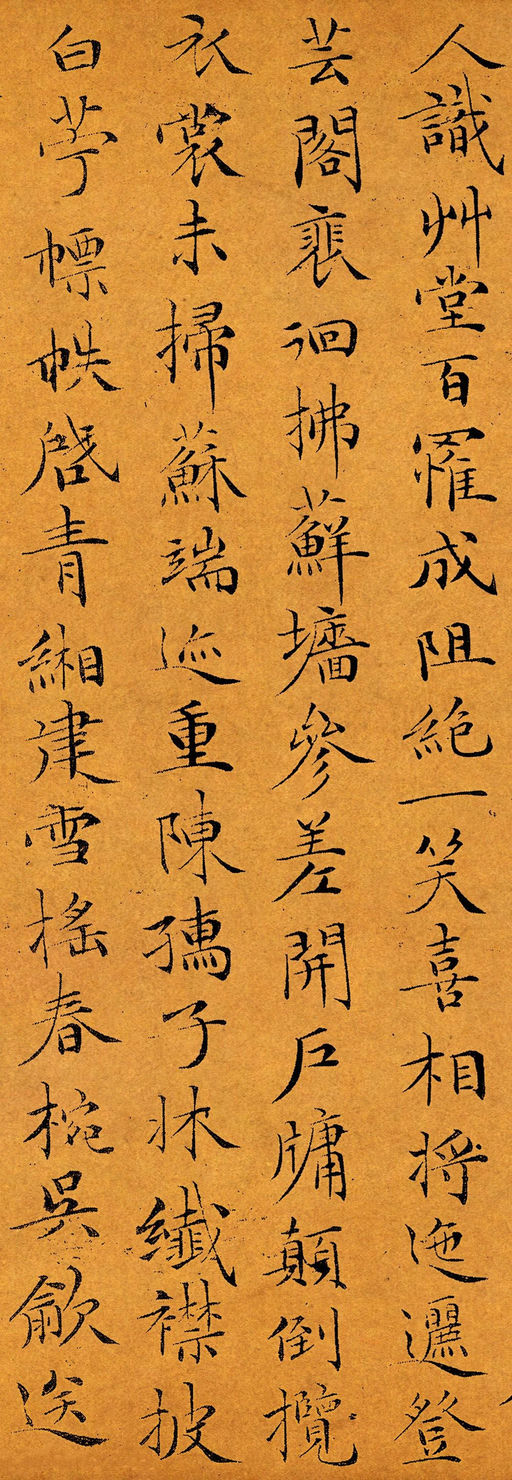 人識艸堂百罹成阻絶一笑喜相將迤邐登
芸閣裵徊拂蘚墻參差開戶牗顛倒攬
衣裳未掃蘇端迹重陳孺子牀纖襟披
白苧幖帙啓青緗建雪榣春椀吳歈送